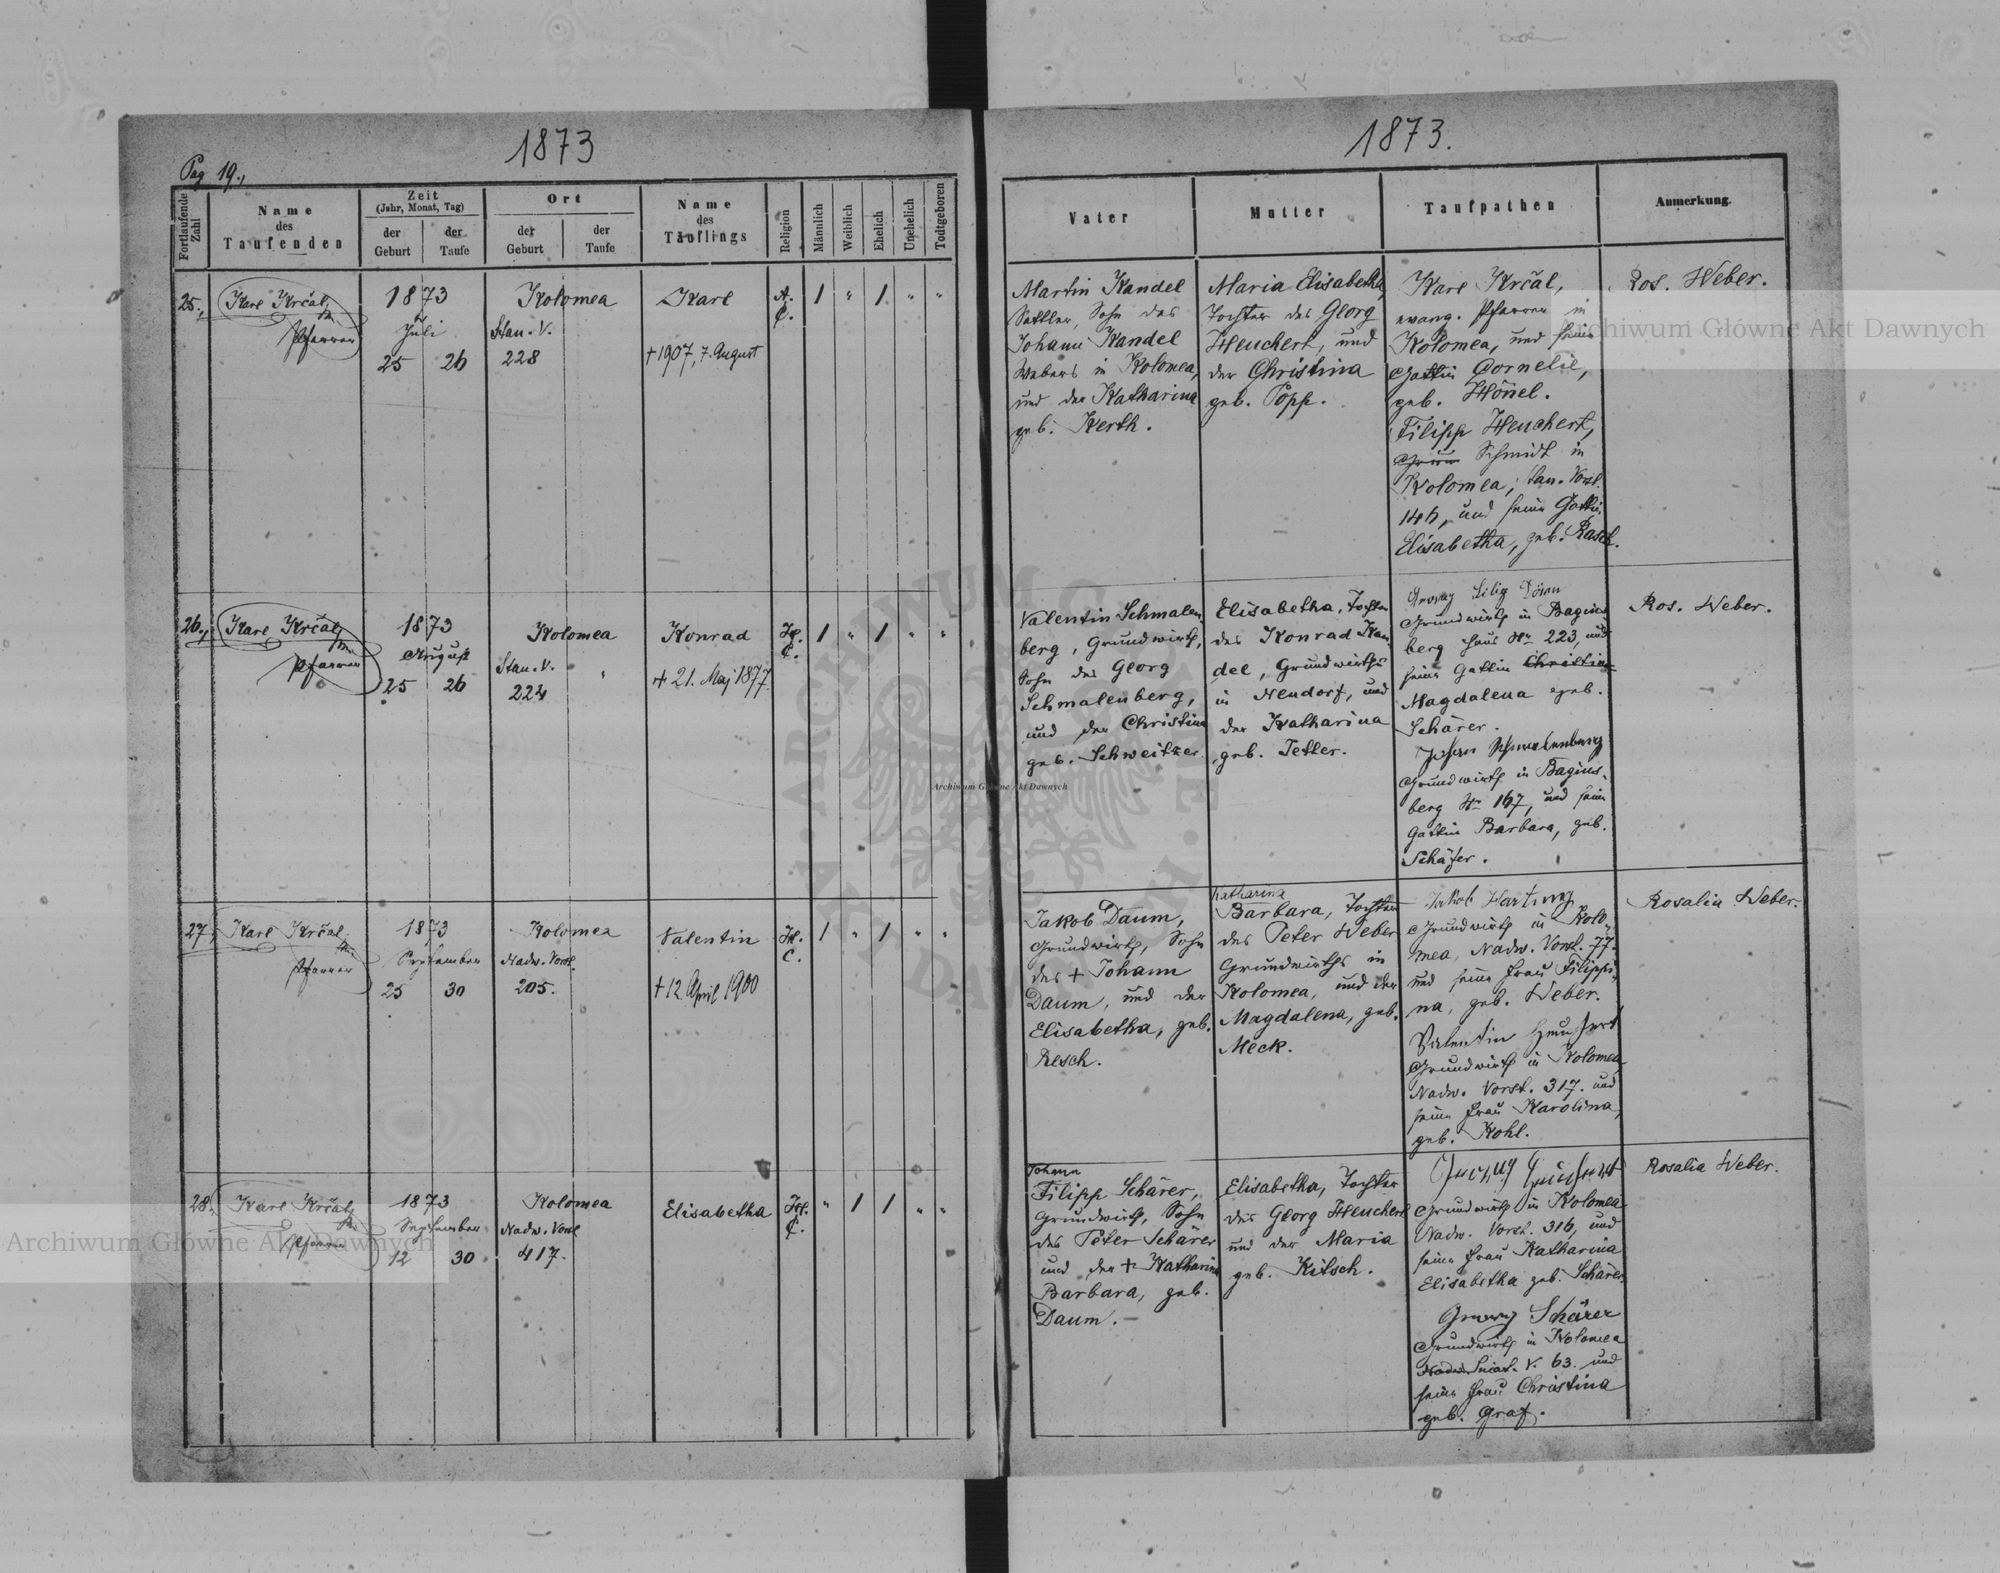 1873
Pag 19.,
Fortlaufende Zahl
Name
des
Taufenden
Zeit
(Jahr, Monat, Tag)
der
Geburt
der
Taufe
Ort
der
Geburt
der
Taufe
Name
des
Täuflings
Religion
Männlich
Weiblich
Ehelich
Unehelich
Todtgeboren
25.,
Karl Krčal,
Pfarrer
1873
Juli
25 26
Kolomea
Stan. V.
228
Karl
+ 1907, 7. August
A.
C.
1 " 1 " "
26.,
Karl Krčal,
Pfarrer
1873
August
25 26
Kolomea
Stan. V. "
224
Konrad
+ 21. Maj 1877.
H.
C.
1 " 1 " "
27,
Karl Krčal,
Pfarrer
1873
September
25 30
Kolomea
Nadw. Vorst.
205.
Valentin
+ 12. April 1900
H.
C.
1 " 1 " "
28.
Karl Krčal,
Pfarrer
1873
September
12 30
Kolomea
Nadw. Vorst
417.
Elisabetha
H.
C.
" 1 1 " "
1873.
Vater
Mutter
Taufpathen
Anmerkung.
Martin Kandel
Sattler, Sohn des
Johann Kandel
Webers in Kolomea,
und der Katharina
geb. Kerth.
Maria Elisabetha,
Tochter des Georg
Heuchert, und
der Christina
geb. Popp.
Karl Krčal,
evang. Pfarrer in
Kolomea, und seine
Gattin Cornelie,
geb. Hönel.
Filipp Heuchert,
Schmidt in
Kolomea, Stan. Vorst.
146, und seine Gattin
Elisabetha, geb. Rasel.
Ros. Weber.
Valentin Schmalen-
berg, Grundwirth,
Sohn des Georg
Schmalenberg,
und der Christina
geb. Schweitzer
Elisabetha, Tochter
des Konrad Kan-
del, Grundwirths
in Neudorf, und
der Katharina
geb. Tetler.
Georg Filip
Grundwirth in Bagins
berg Haus Nr 223, und
seine Gattin Christina
Magdalena geb.
Schärer.
Johann Schmalenberg
Grundwirth in Bagins-
berg Nr 167, und seine
Gattin Barbara, geb.
Schäfer.
Ros. Weber.
Jakob Daum,
Grundwirth, Sohn
des + Johann
Daum, und der
Elisabetha, geb.
Resch.
Katharina
Barbara, Tochter
des Peter Weber
Grundwirths in
Kolomea, und der
Magdalena, geb.
Meck.
Jakob Hartung
Grundwirth in Kolo-
mea, Nadw. Vorst. 77.
und seine Frau Filippi-
na, geb. Weber.
Valentin Heuchert
Grundwirth in Kolomea
Nadw. Vorst. 317. und
seine Frau Karolina,
geb. Kohl.
Rosalia Weber.
Johann
Filipp Schärer,
Grundwirth, Sohn
des Peter Schärer
und der + Katharina
Barbara, geb.
Daum.
Elisabetha, Tochter
des Georg Heuchert
und der Maria
geb. Kitsch.
Georg Heuchert
Grundwirth in Kolomea
Nadw. Vorst. 316, und
seine Frau Katharina
Elisabetha geb. Schärer
Georg Schärer
Grundwirth in Kolomea
Sniat. V. 63. und
seine Frau Christina
geb. Graf.
Rosalia Weber.
Archiwum Główne Akt Dawnych
Archiwum Główne Akt Dawnych
Archiwum Główne Akt Dawnych